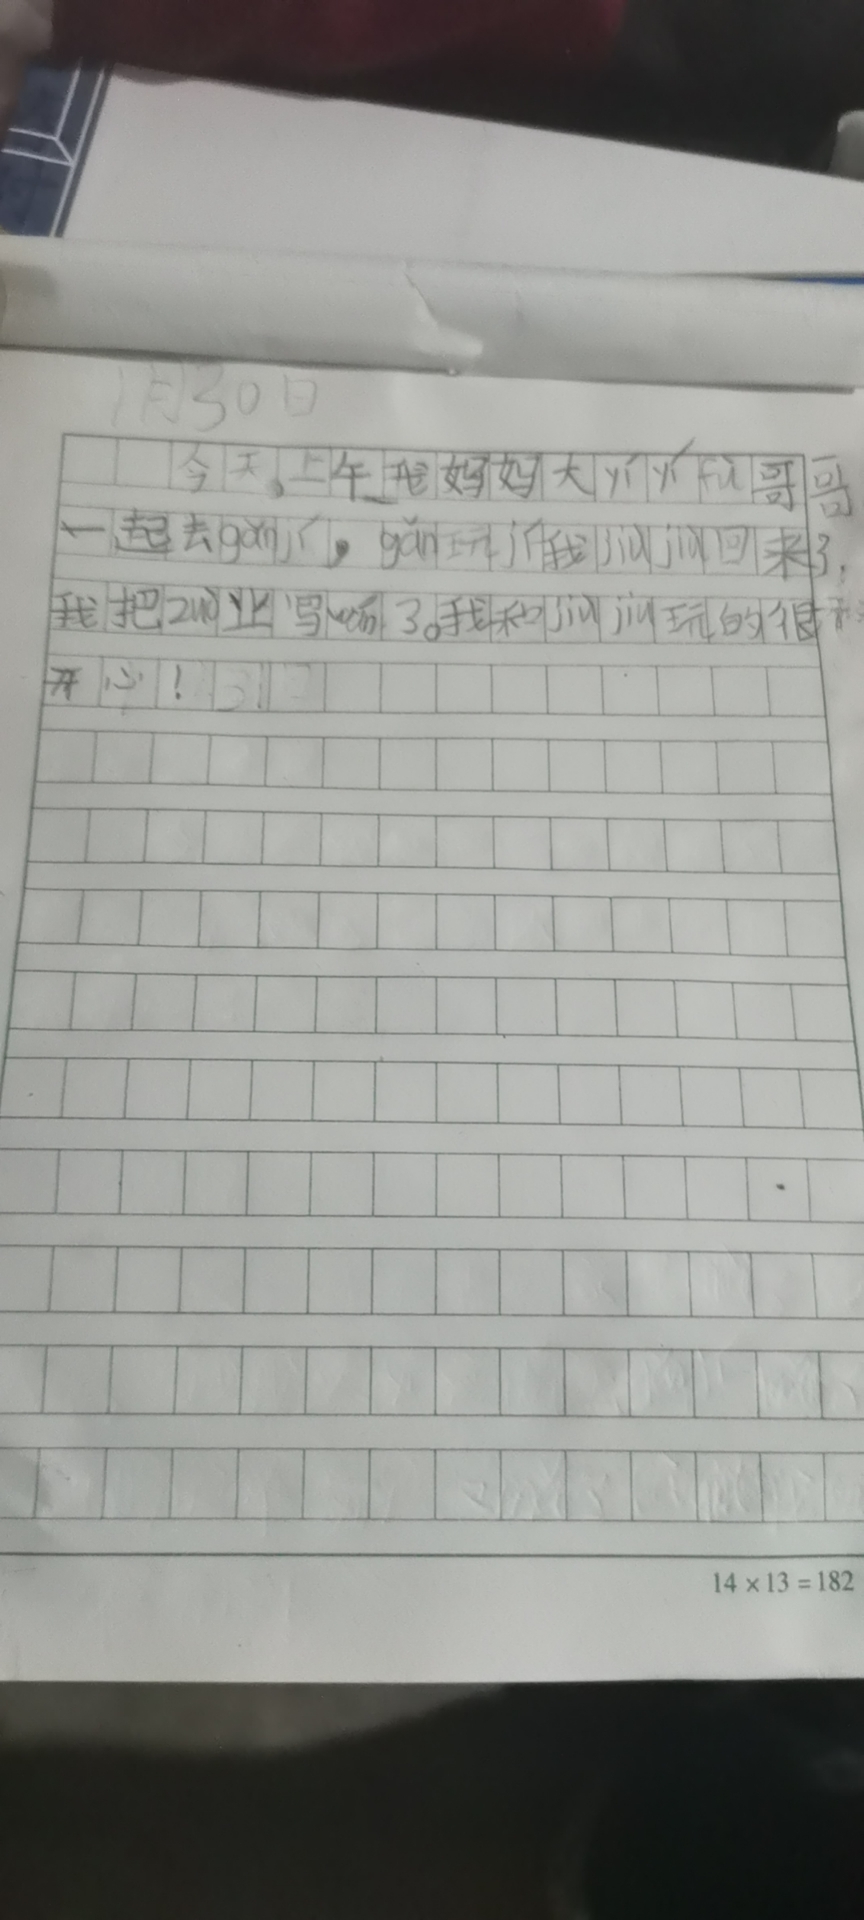 1月30日
今天,上午我妈妈大yíyífu哥哥
一起去gǎnjí,gǎn玩jí我jiùjiu回来了,
我把zuò业写wán了。我和jiùjiu玩的很
开心!
14×13=182